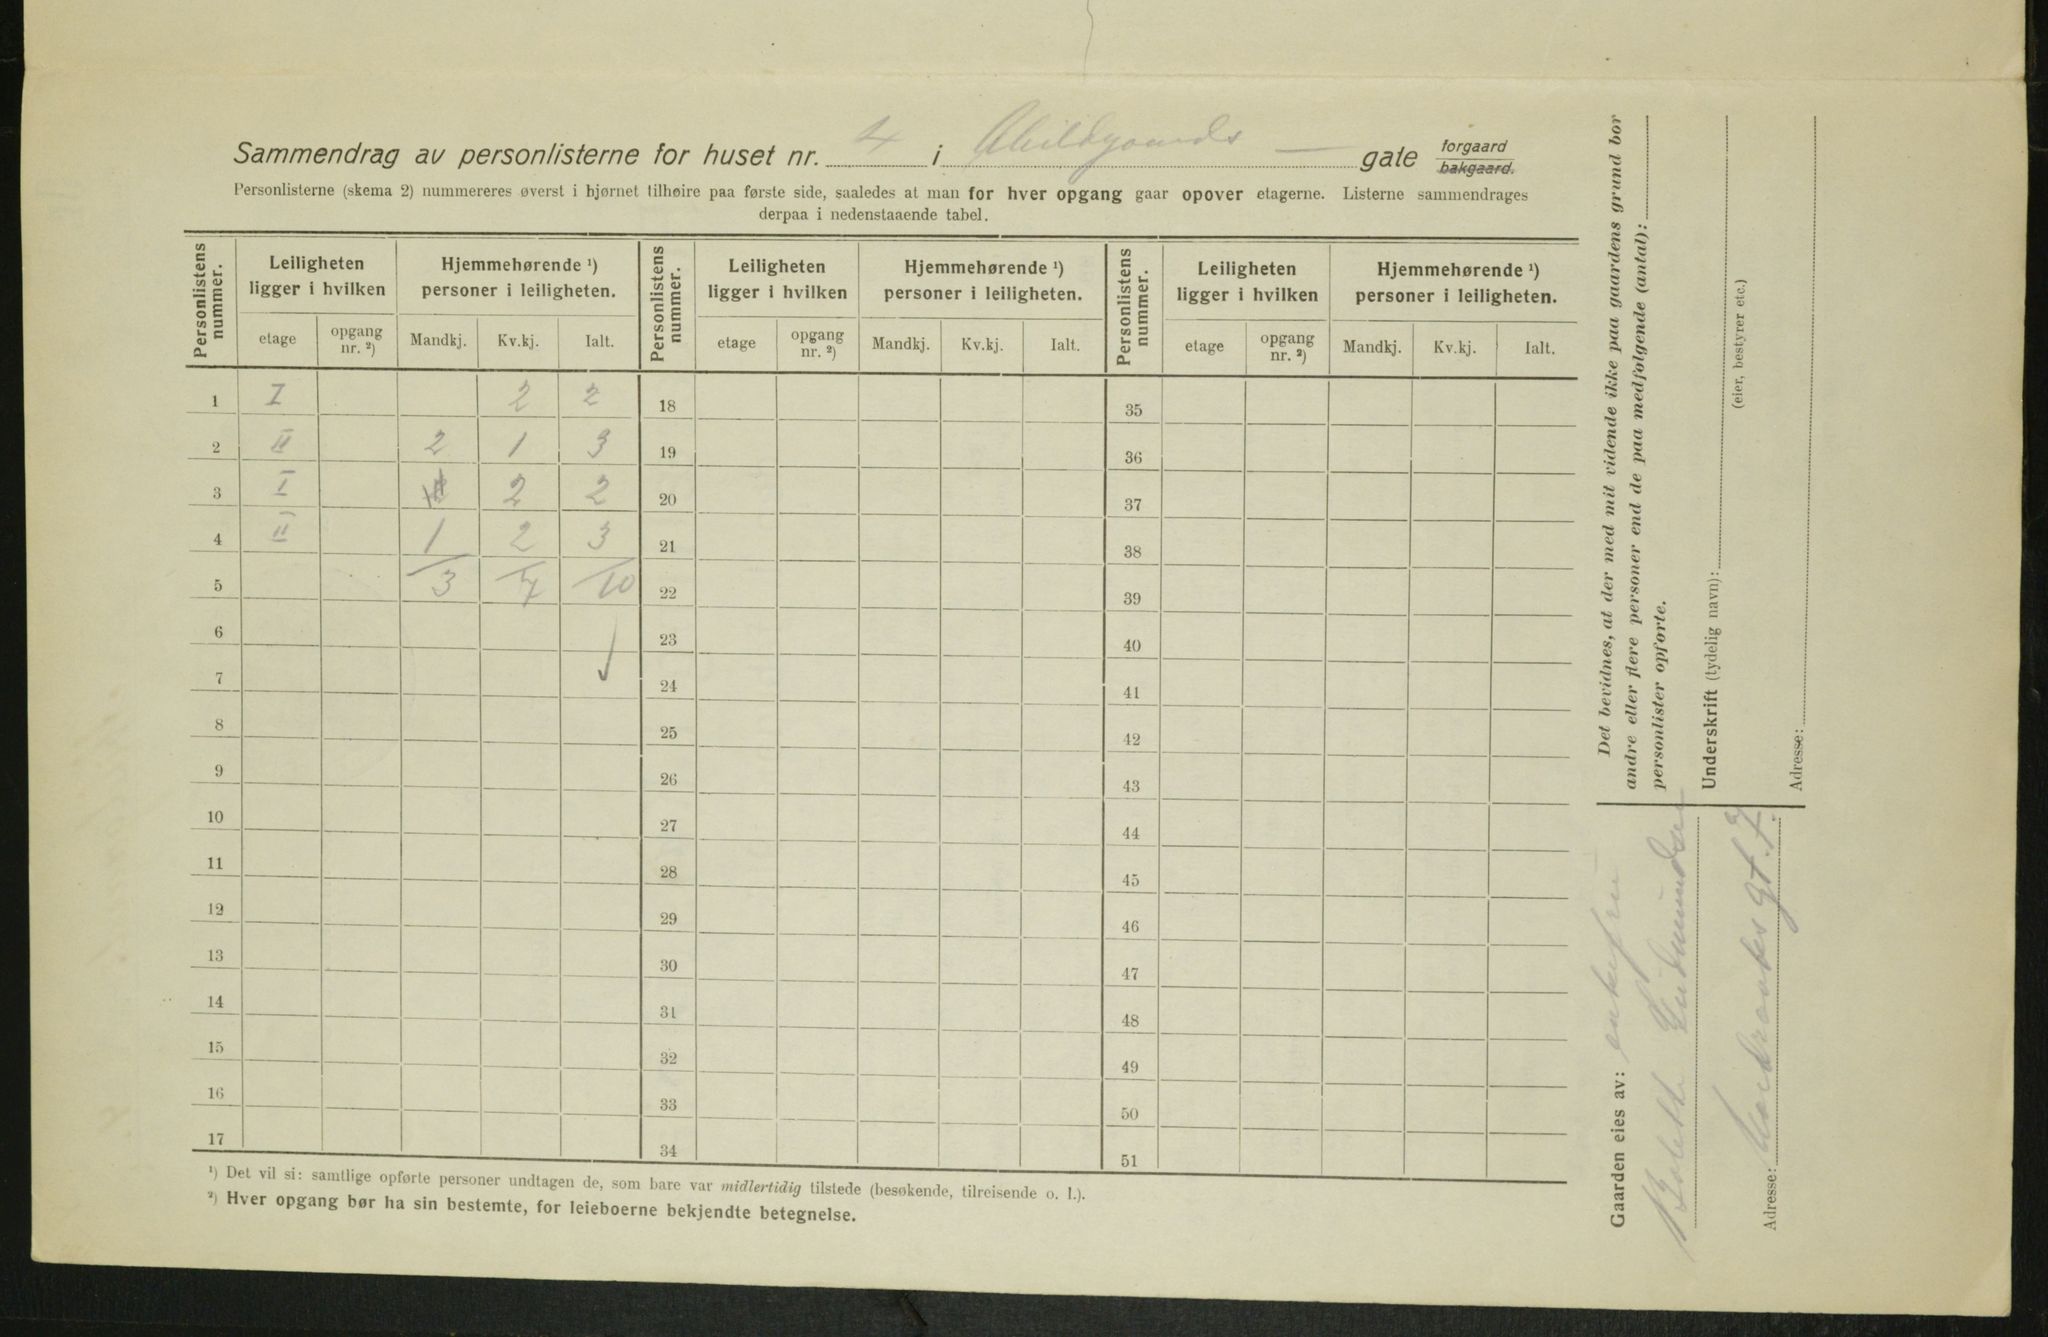 Sammendrag av personlisterne for huset nr. 4 i Abildgaards — gate forgaard
bakgaard.
Personlisterne (skema 2) nummereres øverst i hjørnet tilhøire paa første side, saaledes at man for hver opgang gaar opover etagerne. Listerne sammendrages
derpaa i nedenstaaende tabel.
Personlistens nummer. Leiligheten ligger i hvilken Hjemmehørende ¹) personer i leiligheten. Personlistens nummer. Leiligheten ligger i hvilken Hjemmehørende ¹) personer i leiligheten. Personlistens nummer. Leiligheten ligger i hvilken Hjemmehørende ¹) personer i leiligheten.
etage opgang nr. ²) Mandkj. Kv.kj. Ialt. etage opgang nr. ²) Mandkj. Kv.kj. Ialt. etage opgang nr. ²) Mandkj. Kv.kj. Ialt.
1 I 2 2 18 35
2 II 2 1 3 19 36
3 I 2 2 20 37
4 II 1 2 3 21 38
5 3 7 10 22 39
6 23 40
7 24 41
8 25 42
9 26 43
10 27 44
11 28 45
12 29 46
13 30 47
14 31 48
15 32 49
16 33 50
17 34 51
¹) Det vil si: samtlige opførte personer undtagen de, som bare var midlertidig tilstede (besøkende, tilreisende o. l.).
²) Hver opgang bør ha sin bestemte, for leieboerne bekjendte betegnelse.
Det bevidnes, at der med mit vidende ikke paa gaardens grund bor
andre eller flere personer end de paa medfølgende (antal):
personlister opførte.
Underskrift (tydelig navn):
(eier, bestyrer etc.)
Adresse:
Gaarden eies av: enkefru
Bolette Gudmundsen
Adresse: gt. 7.